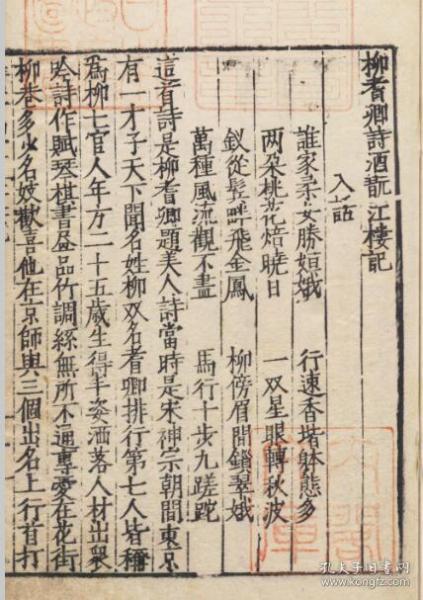 柳耆卿詩酒翫江樓記
入話
誰家柔女勝姮娥　行速香堦躰態多
两朶桃花焙曉日　一双星眼轉秋波
釵從鬂畔飛金鳳　柳傍眉間鎖翠娥
萬種風流觀不盡　馬行十步九蹉跎
這首詩是柳耆卿題美人詩當時是宋神宗朝間東京
有一才子天下聞名姓柳双名耆卿排行第七人皆稱
爲柳七官人年方二十五歲生得丰姿洒落人材出衆
吟詩作賦琴棋書畫品竹調絲無所不通專愛在花街
柳巷多少名妓歡喜他在京師與三個出名上行首打
孔夫子旧书网
www.kongfz.com